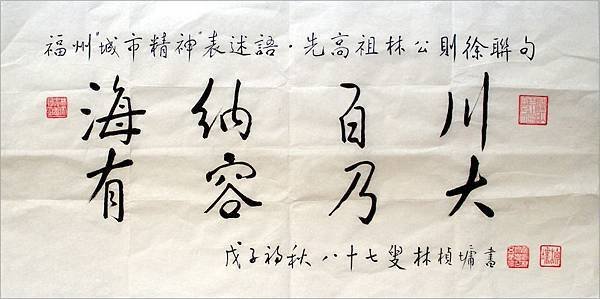 福州"城市精神"表述語·先高祖林公則徐聯句
海納百川
有容乃大
戊子初秋 八十七叟林楨墉書